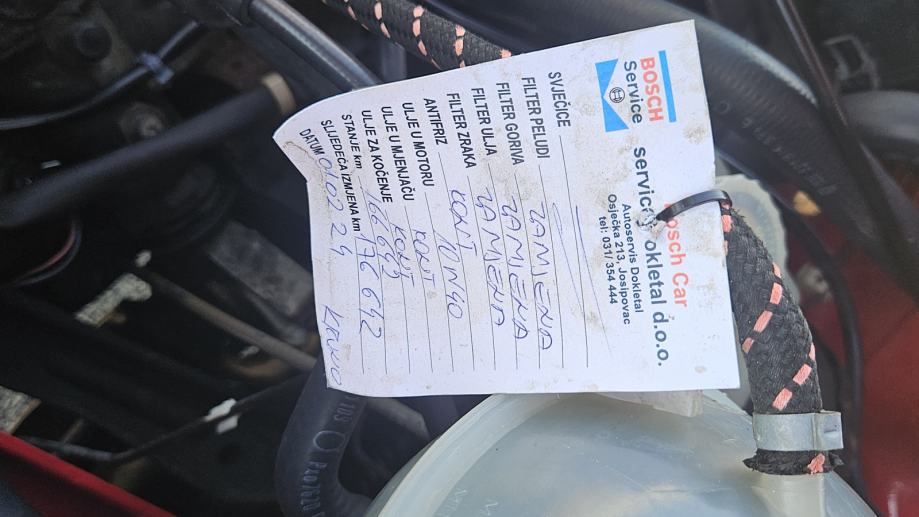 BOSCH
Service
Bosch Car
Service Dokletal d.o.o.
Autoservis Dokletal
Osječka 213, Josipovac
tel: 031/ 354 444
SVJEĆICE
FILTER PELUDI ZAMJENA
FILTER GORIVA ZAMJENA
FILTER ULJA ZAMJENA
FILTER ZRAKA KONT
ANTIFRIZ
ULJE U MOTORU 10W40
ULJE U MJENJAČU KONT
ULJE ZA KOČENJE KONT
STANJE km 166 642
SLIJEDEĆA IZMJENA km 176 642
DATUM 01.02 24